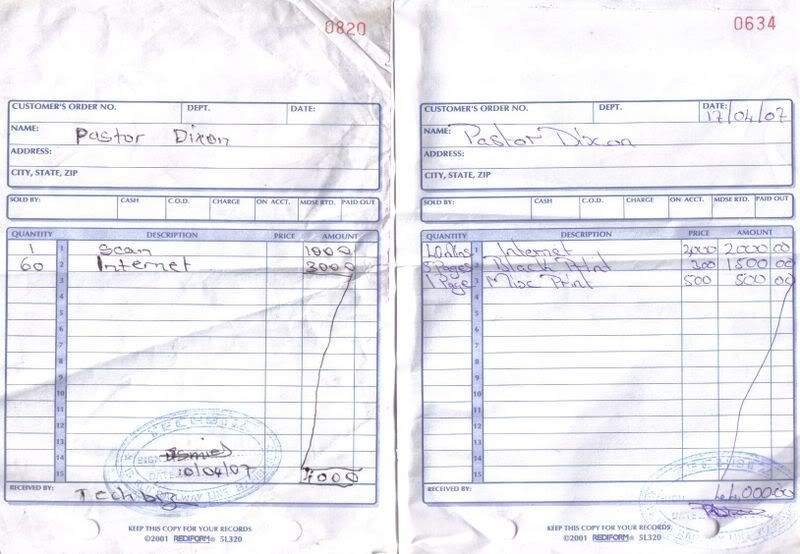 0820
CUSTOMER'S ORDER NO. DEPT. DATE:
NAME: Pastor Dixon
ADDRESS:
CITY, STATE, ZIP
SOLD BY: CASH C.O.D. CHARGE ON ACCT. MDSE RTD. PAID OUT
QUANTITY DESCRIPTION PRICE AMOUNT
1 1 Scan 1000
60 2 Internet 3000
3
4
5
6
7
8
9
10
11
12
13
14
15 4000
SIGN
DATE 10/04/07
RECEIVED BY: Techbiz
KEEP THIS COPY FOR YOUR RECORDS
©2001 REDIFORM® 5L320
0634
CUSTOMER'S ORDER NO. DEPT. DATE: 17/04/07
NAME: Pastor Dixon
ADDRESS:
CITY, STATE, ZIP
SOLD BY: CASH C.O.D. CHARGE ON ACCT. MDSE RTD. PAID OUT
QUANTITY DESCRIPTION PRICE AMOUNT
40 Mins 1 Internet 2,000 2000 00
5 Pages 2 Black Print 300 1500 00
1 Page 3 Misc Print 500 500 00
4
5
6
7
8
9
10
11
12
13
14
15
RECEIVED BY:
KEEP THIS COPY FOR YOUR RECORDS
©2001 REDIFORM® 5L320